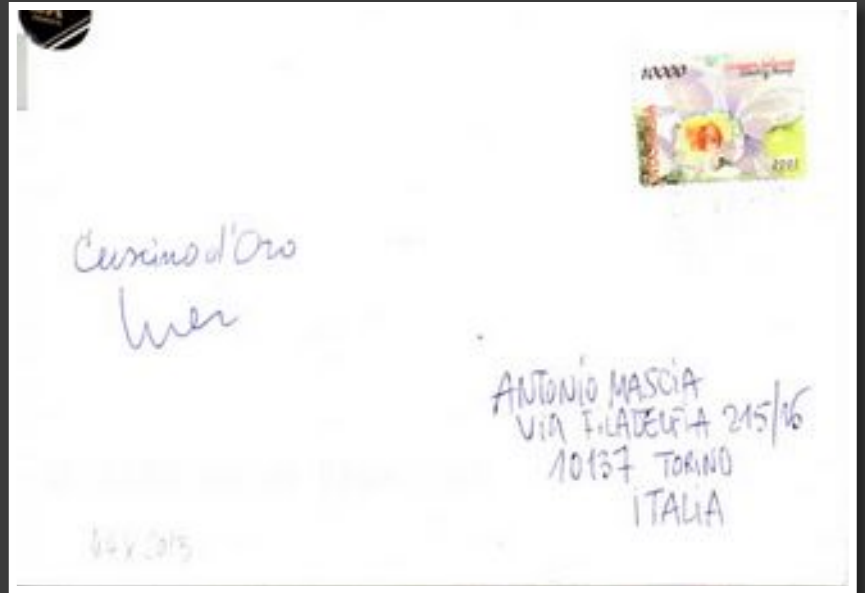 10000
2001
Cuscino d'Oro
ANTONIO MASCIA
VIA FILADELFIA 215/16
10137 TORINO
ITALIA